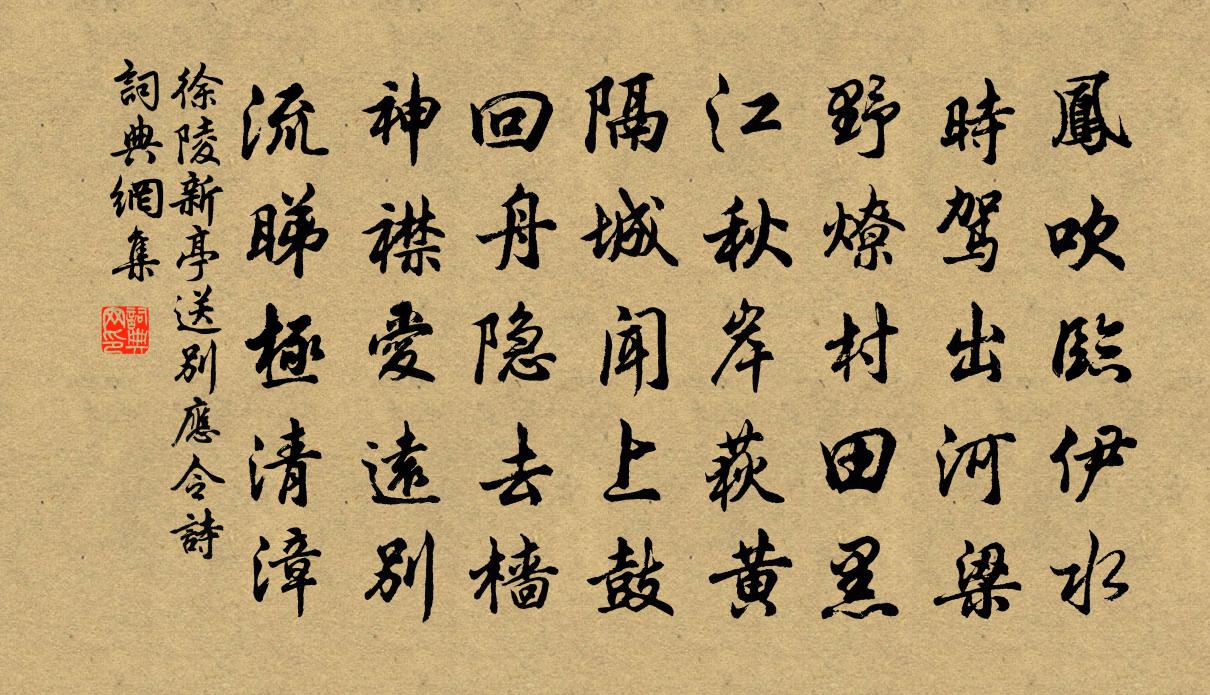 鳳吹臨伊水
時駕出河梁
野燎村田黑
江秋岸荻黄
隔城聞上鼓
回舟隐去檣
神襟愛遠別
流睇極清漳
徐陵新亭送別應令詩
詞典網集
詞典网印